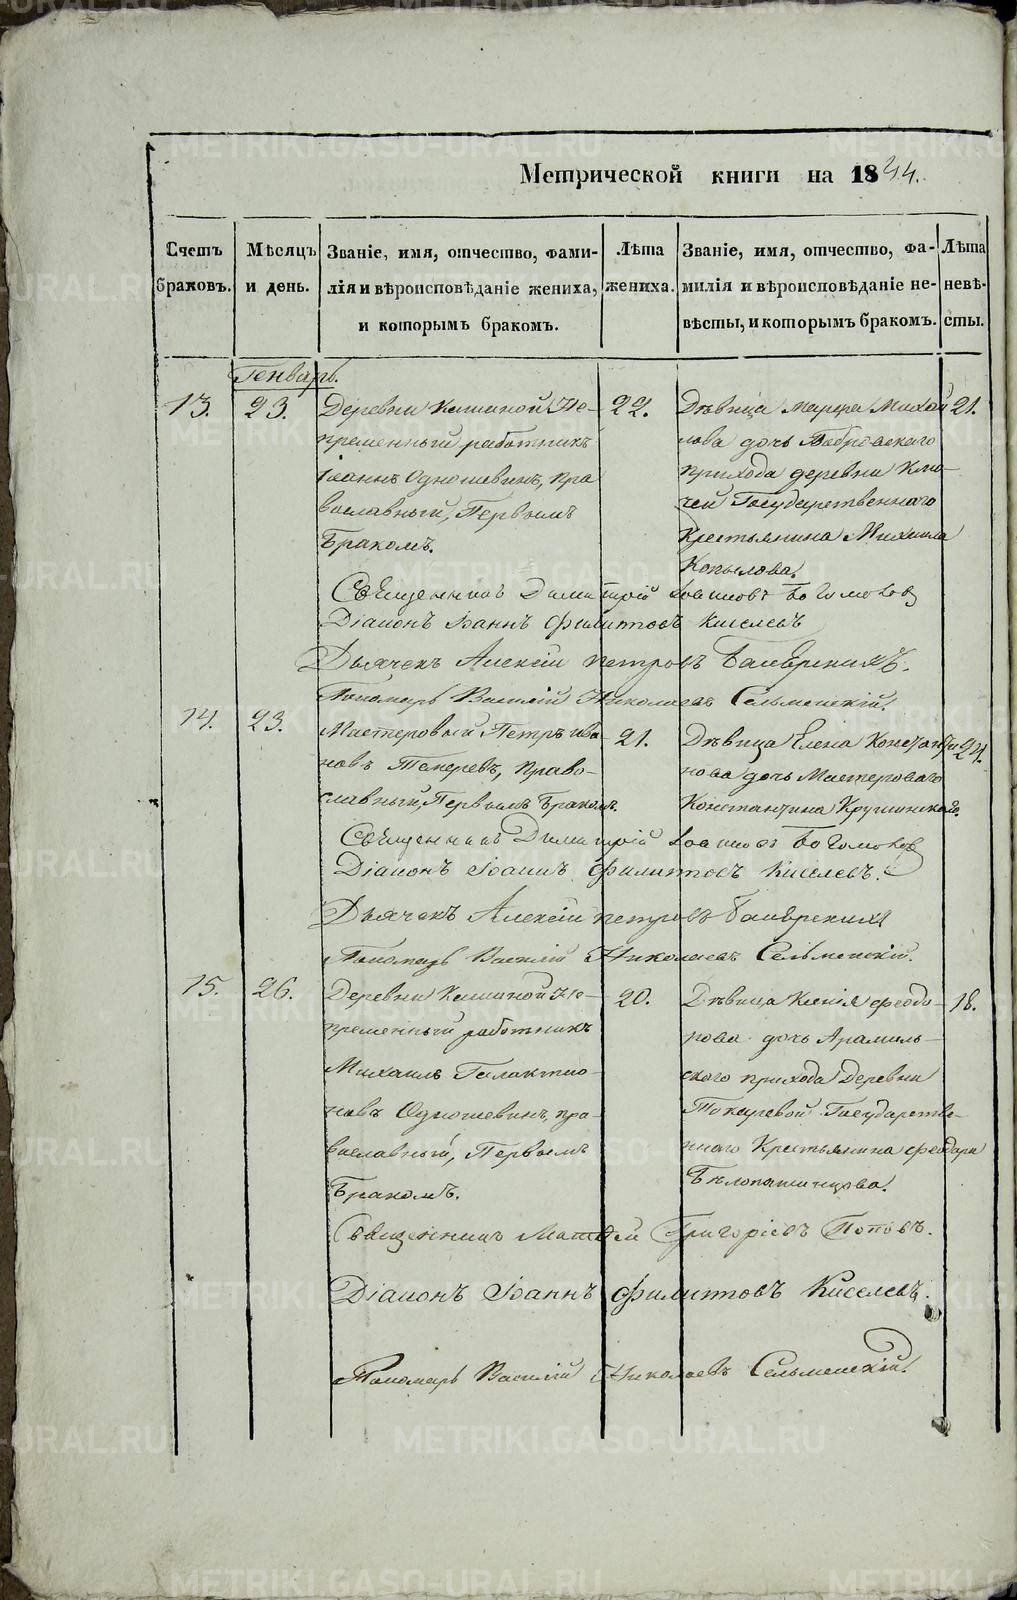 Метрической книги на 1844.
Счетъ браковъ.
Мѣсяцъ и день.
Званіе, имя, отчество, фами-
лія и вѣроисповѣданіе жениха,
и которымъ бракомъ.
Лѣта жениха.
Званіе, имя, отчество, фа-
милія и вѣроисповѣданіе не-
вѣсты, и которымъ бракомъ.
Лѣта невѣ-
сты.
Генварь.
13.
23.
Деревни Кашиной Не-
премѣнный работникъ
Іоаннъ Одношевинъ, пра
вославный, Первымъ
Бракомъ.
22.
Дѣвица Марѳа Михай
лова дочь Бобровскаго
прихода деревни Клю-
чей Государственнаго
Крестьянина Михаила
Копылова.
21.
Священникъ Димитрій Іоанновъ Богомоловъ
Діаконъ Іоаннъ Филиповъ Киселевъ
Дьячекъ Алексій Петровъ
Пономарь Василій Николаевъ Сельменскій.
14.
23.
Мастеровый Петръ Ива-
новъ Темеревъ, Право-
славный, Первымъ Бракомъ.
21.
Дѣвица Елена Константи
нова дочь Мастероваго
Константина Крушинскаго.
24.
Священникъ Димитрій Іоанновъ Богомоловъ
Діаконъ Іоаннъ Филиповъ Киселевъ.
Дьячекъ Алексій Петровъ
Пономарь Василій Николаевъ Сельменскій.
15.
26.
Деревни Кашиной Не-
премѣнный работникъ
Михаилъ Галактіо-
новъ Одношевинъ, пра-
вославный, Первымъ
Бракомъ.
20.
Дѣвица Ксенія Феодо-
рова дочь Арамиль-
скаго прихода Деревни
Токаревой Государстве-
ннаго Крестьянина Феодора
Бѣлопашинцова.
18.
Священникъ Матѳей Григоріевъ Поповъ.
Діаконъ Іоаннъ Филиповъ Киселевъ.
Пономарь Василій Николаевъ Сельменскій.
METRIKI.GASO-URAL.RU